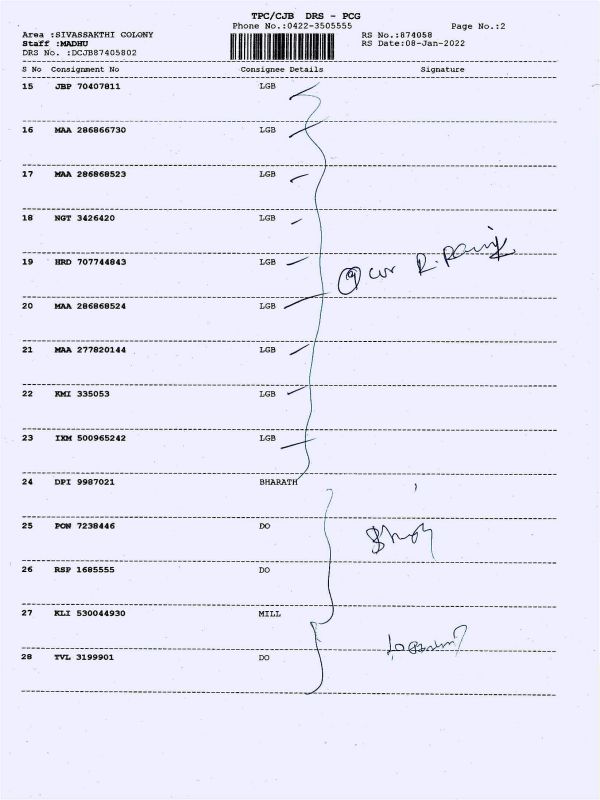 TPC/CJB DRS - PCG
Phone No.:0422-3505555 Page No.:2
Area :SIVASSAKTHI COLONY RS No.:874058
Staff :MADHU RS Date:08-Jan-2022
DRS No. :DCJB87405802
S No Consignment No Consignee Details Signature
15 JBP 70407811 LGB
16 MAA 286866730 LGB
17 MAA 286868523 LGB
18 NGT 3426420 LGB
19 HRD 707744843 LGB
20 MAA 286868524 LGB
21 MAA 277820144 LGB
22 KMI 335053 LGB
23 IXM 500965242 LGB
24 DPI 9987021 BHARATH
25 PON 7238446 DO
26 RSP 1685555 DO
27 KLI 530044930 MILL
28 TVL 3199901 DO